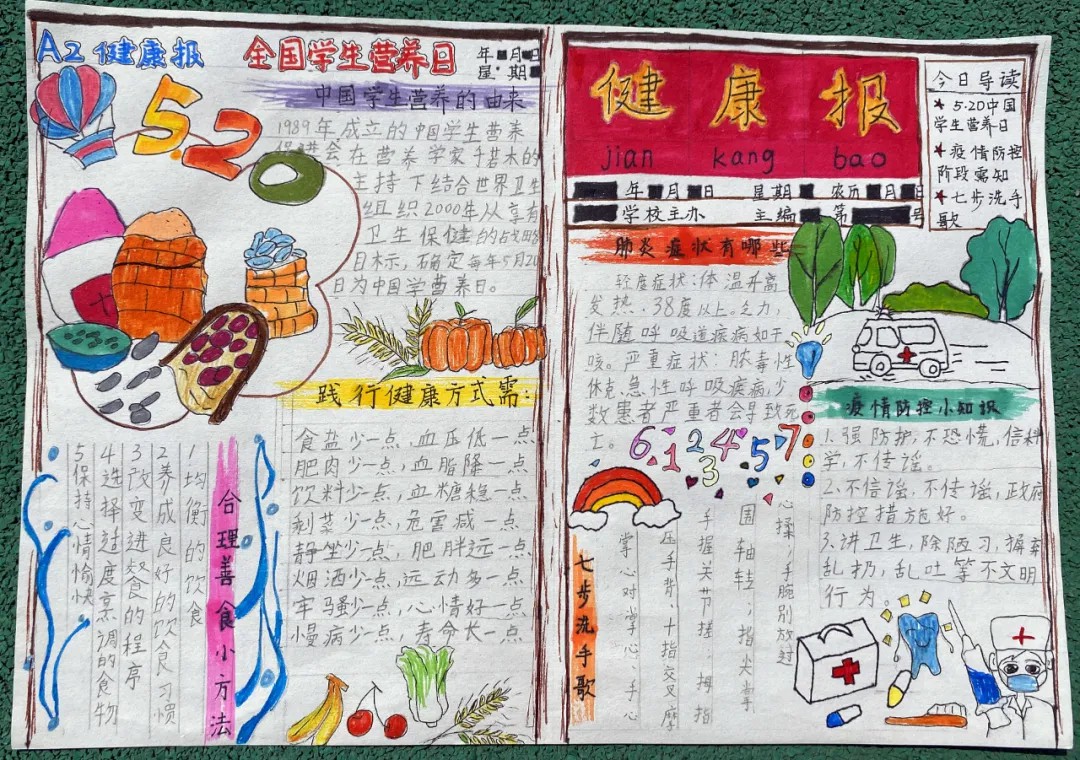 A2 健康报
全国学生营养日
年 月 日
星期
中国学生营养的由来
5.20
1989年成立的中国学生营养
保进会在营养学家于若木的
主持下结合世界卫生
组织2000年从享有
卫生保健的战略
目标，确定每年5月20
日为中国学营养日。
践行健康方式需:
食盐少一点,血压低一点
肥肉少一点,血脂降一点
饮料少一点,血糖稳一点
剩菜少一点,危害减一点
静坐少一点,肥胖远一点
烟酒少一点,运动多一点
牢骚少一点,心情好一点
慢病少一点,寿命长一点
合理善食小方法
1均衡的饮食
2养成良好的饮食习惯
3改变进食的程序
4选择过度烹调的食物
5保持心情愉快
健康报
jian kang bao
年 月 日 星期 农历 月 日
学校主办 主编 第 号
今日导读
5·20中国
学生营养日
疫情防控
阶段需知
七步洗手
歌
肺炎症状有哪些
轻度症状:体温升高
发热,38度以上。乏力,
伴随呼吸道疾病如干
咳。严重症状:脓毒性
休克,急性呼吸疾病,少
数患者严重者会导致死
亡。
6 1 2 3 4 5 7
七步洗手歌
掌心对掌心、手心
压手背、十指交叉摩
手握关节搓、拇指
围轴转;指尖掌
心揉,手腕别放过
疫情防控小知识
1.强防护,不恐慌,信科
学,不传谣。
2.不信谣,不传谣,政府
防控措施好。
3.讲卫生,除陋习,摒弃
乱扔,乱吐等不文明
行为。